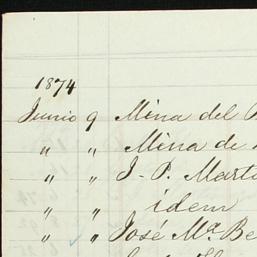 1874
Junio 9 Mina del
" " Mina de
" " J. P. Mart
" " idem
" " José Ma. Be